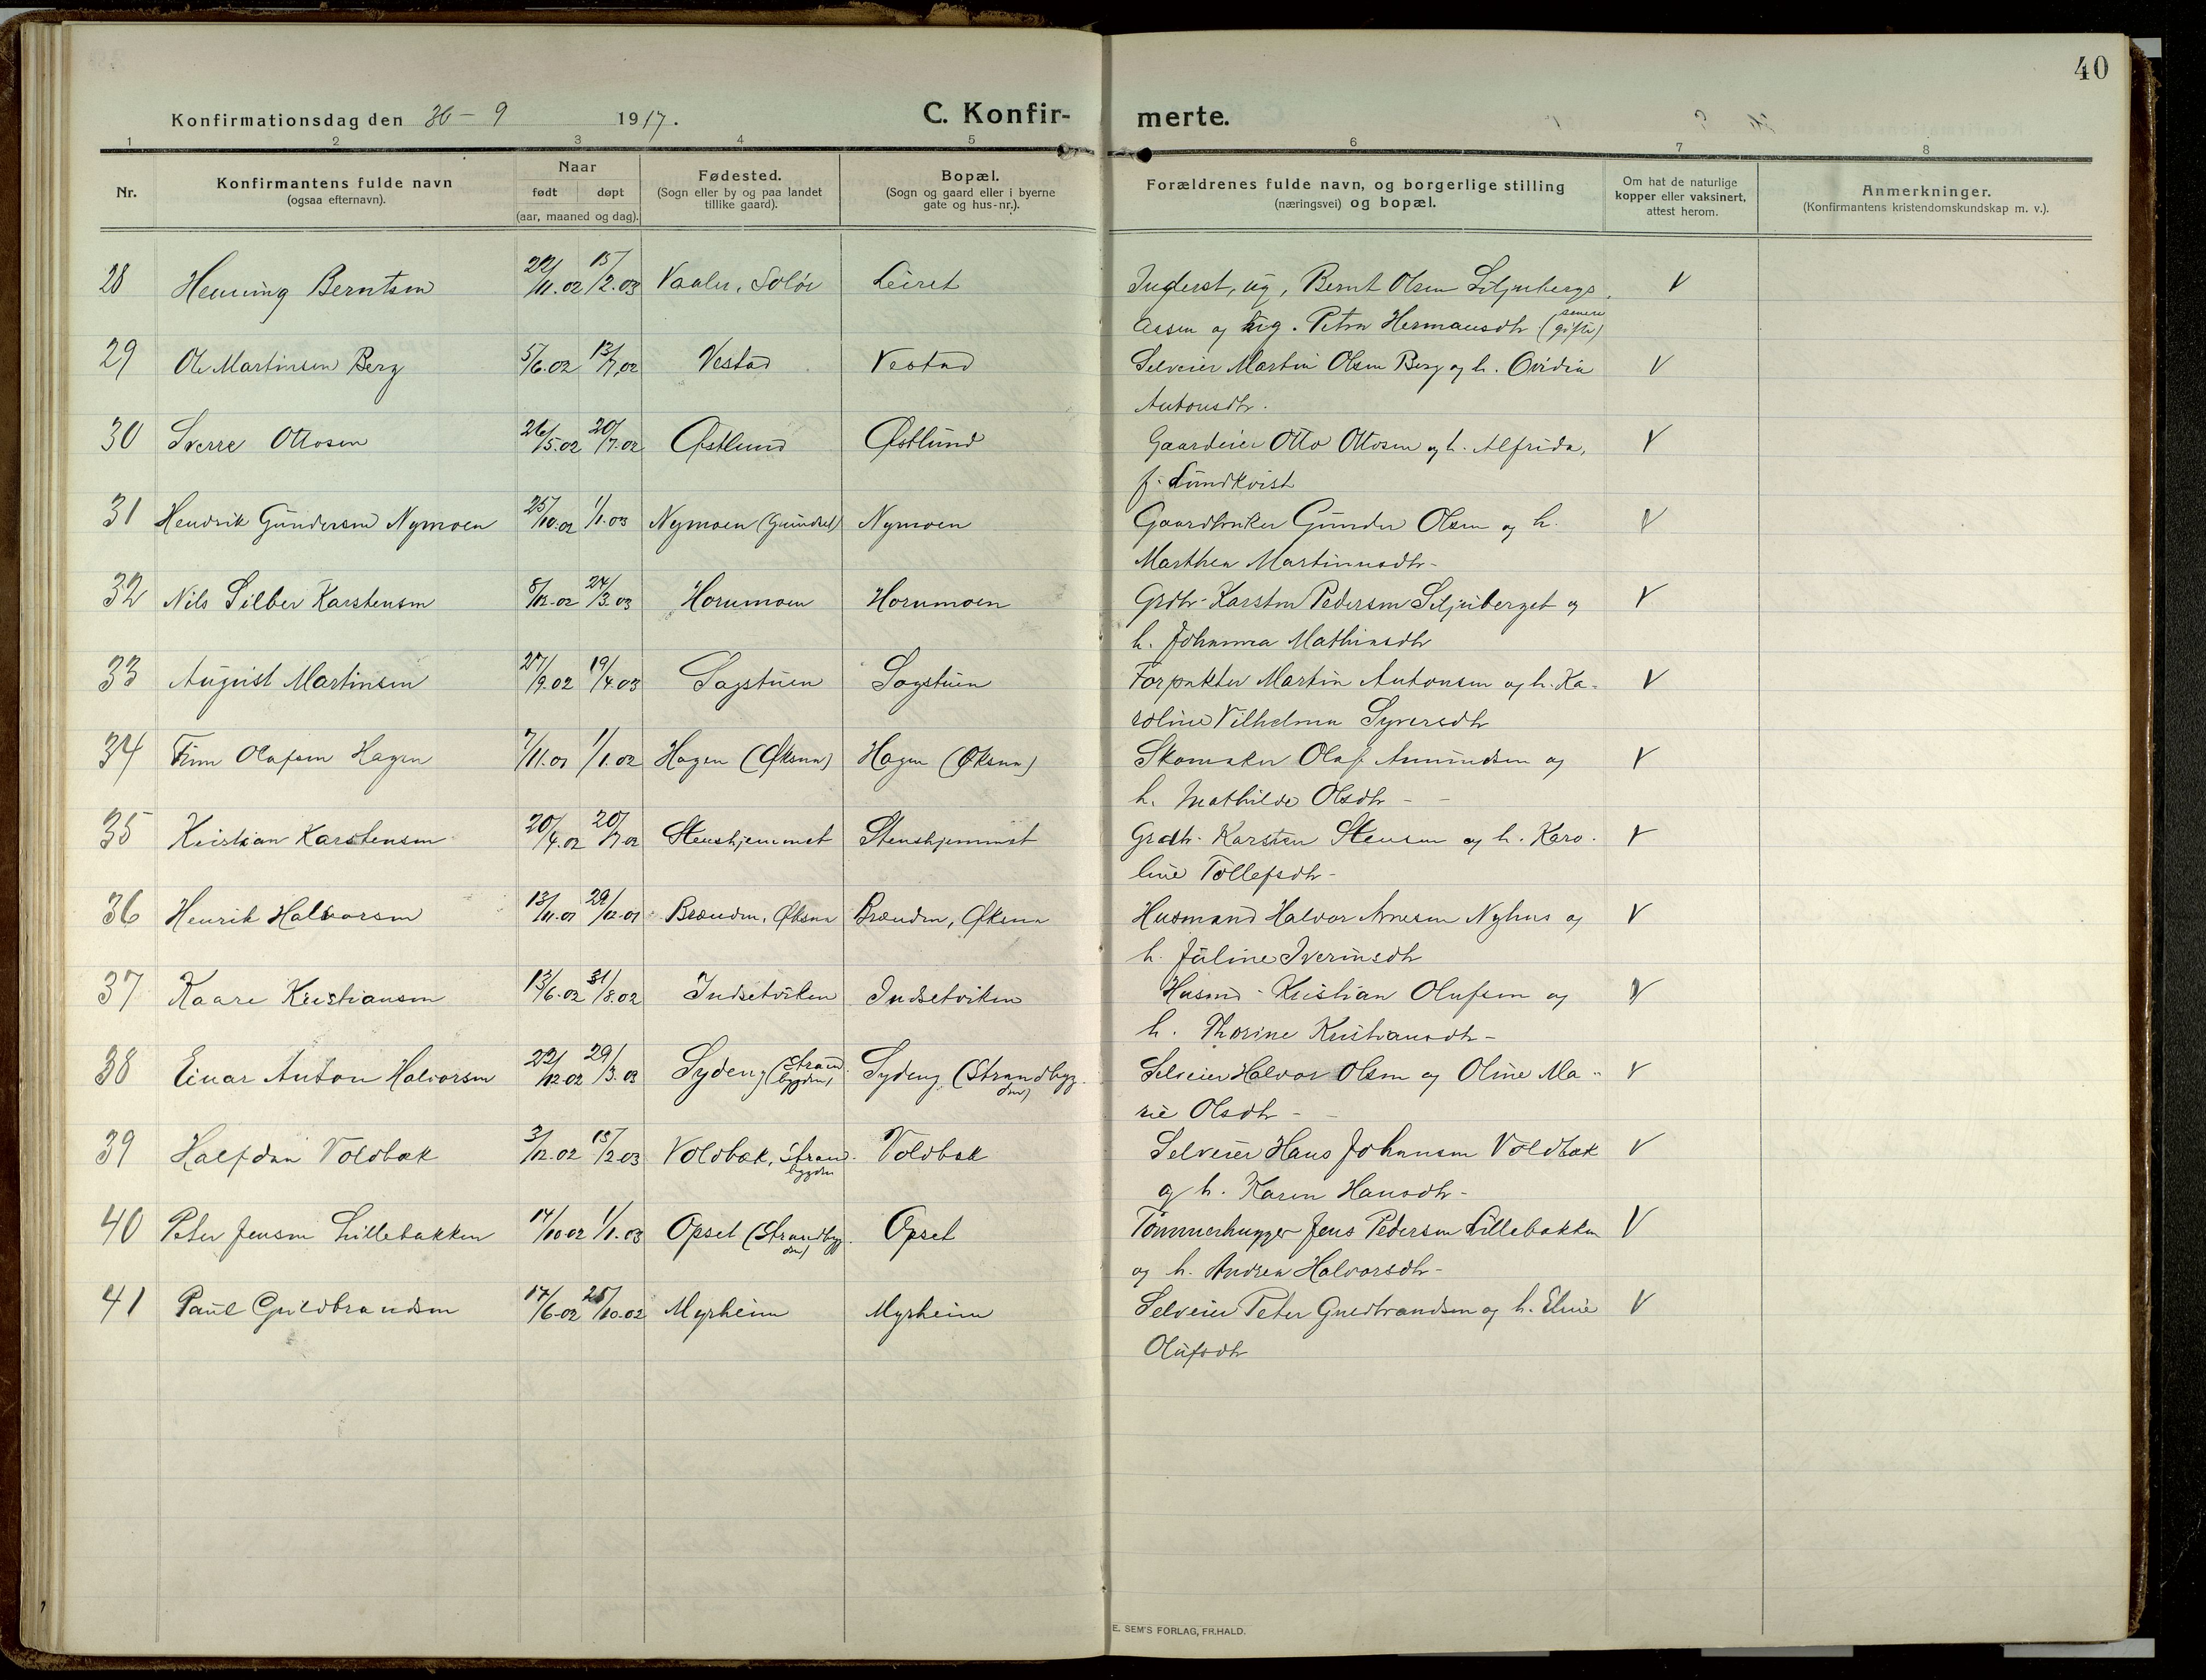 40
Konfirmationsdag den 30 - 9 1917.
C. Konfir- merte.
1 2 3 4 5 6 7 8
Nr.
Konfirmantens fulde navn
(ogsaa efternavn).
Naar
født døpt
(aar, maaned og dag).
Fødested.
(Sogn eller by og paa landet
tillike gaard).
Bopæl.
(Sogn og gaard eller i byerne
gate og hus-nr.).
Forældrenes fulde navn, og borgerlige stilling
(næringsvei) og bopæl.
Om hat de naturlige
kopper eller vaksinert,
attest herom.
Anmerkninger.
(Konfirmantens kristendomskundskap m. v.).
28 Henning Berntsen 22/11.02 15/2.03 Vaaler, Solør Leiret Inderst, ug, Bernt Olsen Siljubergs V
aasen og Pig. Petra Hermansdtr (senere gifte)
29 Ole Martinsen Berg 5/6.02 13/7.02 Vestad Vestad Selveier Martin Olsen Berg og h. Ovidia V
Antonsdtr.
30 Sverre Ottosen 26/5.02 20/7.02 Østlund Østlund Gaardeier Otto Ottosen og h. Alfrida, V
f. Lundkvist
31 Hendrik Gundersen Nymoen 25/10.02 1/1.03 Nymoen (Grundset) Nymoen Gaardbruker Gunder Olsen og h. V
Marthea Martinusdtr-
32 Nils Silber Karstensen 8/12.02 24/3.03 Hornmoen Hornmoen Grdbr- Karsten Pedersen Siljuberget og V
h. Johanna Mathiasdtr
33 August Martinsen 27/9.02 19/4.03 Sagstuen Sagstuen Forpakter Martin Antonsen og h. Ka- V
roline Vilhelma Syversdtr
34 Finn Olafsen Hagen 7/11.01 1/1.02 Hagen (Øksna) Hagen (Øksna) Skomaker Olaf Amundsen og V
h. Mathilde Olsdtr - -
35 Kristian Karstensen 20/4.02 20/7.02 Stenshjemmet Stenshjemmet Grdbr. Karsten Stensen og h. Karo- V
line Tollefsdtr-
36 Henrik Halvorsen 13/11.01 29/12.01 Brænden, Øksna Brænden, Øksna Husmand Halvor Arnesen Nyhus og V
h. Juline Iverinsdtr
37 Kaare Kristiansen 13/6.02 31/8.02 Indsetviken Indsetviken Husmd- Kristian Olufsen og V
h. Thorine Kristiansdtr-
38 Einar Anton Halvorsen 22/12.02 29/3.03 Sydeng (Strandbygden) Sydeng (Strandbygden) Selveier Halvor Olsen og Oline Ma- V
rie Olsdtr - -
39 Halfdan Voldbæk 3/12.02 15/2.03 Voldbæk, Strandbygden Voldbæk Selveier Hans Johansen Voldbæk V
og h. Karen Hansdtr-
40 Peter Jensen Lillebakken 14/10.02 1/1.03 Opset (Strandbygden) Opset Tømmerhugger Jens Pedersen Lillebakken V
og h. Andrea Halvorsdtr-
41 Paul Guldbrandsen 17/6.02 25/10.02 Myrheim Myrheim Selveier Peter Guldbrandsen og h. Eline V
Olufsdtr
E. SEM'S FORLAG, FR.HALD.